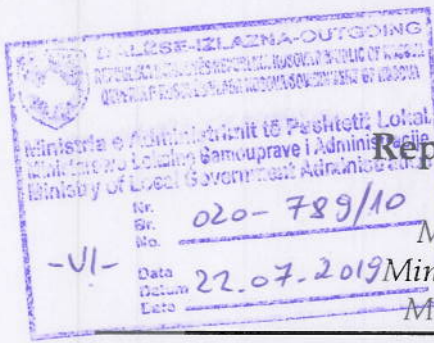 DALËSE-IZLAZNA-OUTGOING
Ministria e Administrimit të Pushtetit Lokal
Ministarstvo Lokalne Samouprave i Administracije
Ministry of Local Government Administration
Rep
Nr.
Br.
No.
020-789/10
M
-VI-
Data
Datum
Date
22.07.2019
Min
M